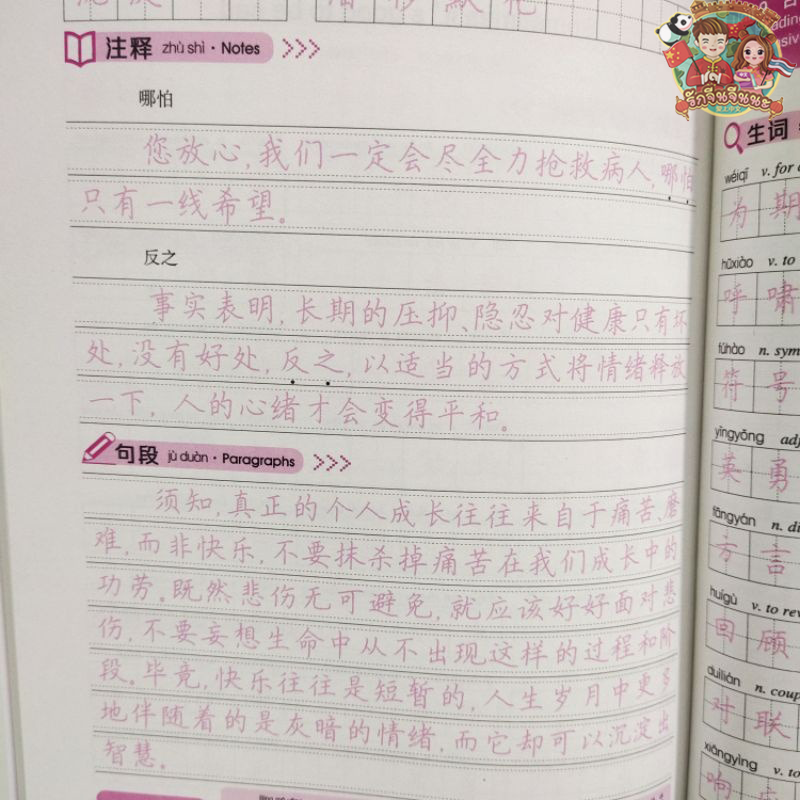 注释 zhù shì · Notes
哪怕
您放心，我们一定会尽全力抢救病人，哪怕
只有一线希望。
反之
事实表明，长期的压抑、隐忍对健康只有坏
处，没有好处，反之，以适当的方式将情绪释放
一下，人的心绪才会变得平和。
句段 jù duàn · Paragraphs
须知，真正的个人成长往往来自于痛苦、磨
难，而非快乐，不要抹杀掉痛苦在我们成长中的
功劳。既然悲伤无可避免，就应该好好面对悲
伤，不要妄想生命中从不出现这样的过程和阶
段。毕竟，快乐往往是短暂的，人生岁月中更多
地伴随着的是灰暗的情绪，而它却可以沉淀出
智慧。
รักจีนจีนนะ
生词
wéiqī v. for
为期
hūxiào v. to
呼啸
fúhào n. sym
符号
yīngyǒng adj
英勇
fāngyán n. di
方言
huígù v. to rev
回顾
duìlián n. coup
对联
xiǎngyìng v. to
响应